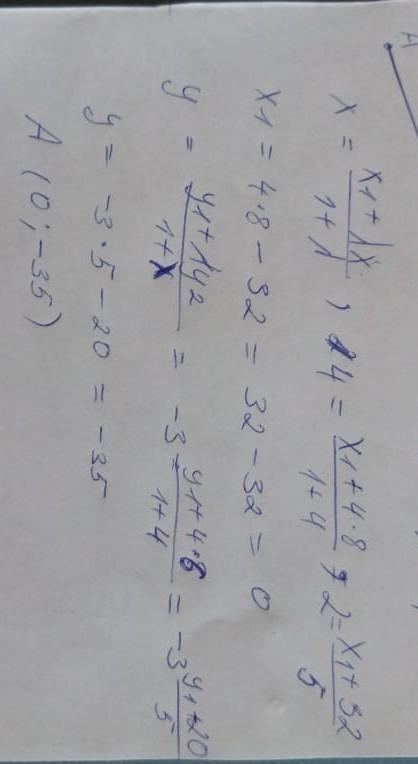 A
x = x1 + λx / 1 + λ , 4 = x1 + 4·8 / 1 + 4 = x1 + 32 / 5
x1 = 4·8 - 32 = 32 - 32 = 0
y = y1 + λy2 / 1 + λ = -3 = y1 + 4·8 / 1 + 4 = -3 y1 + 20 / 5
y = -3·5 - 20 = -35
A (0 ; -35)